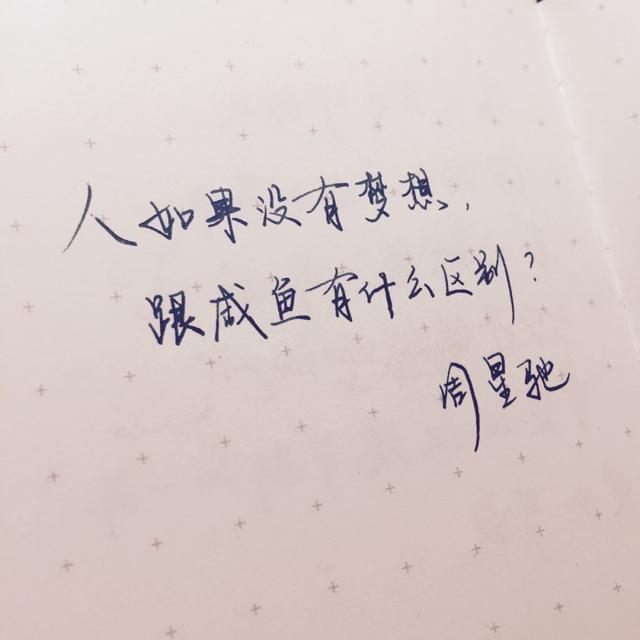 人如果没有梦想，
跟咸鱼有什么区别？
周星驰